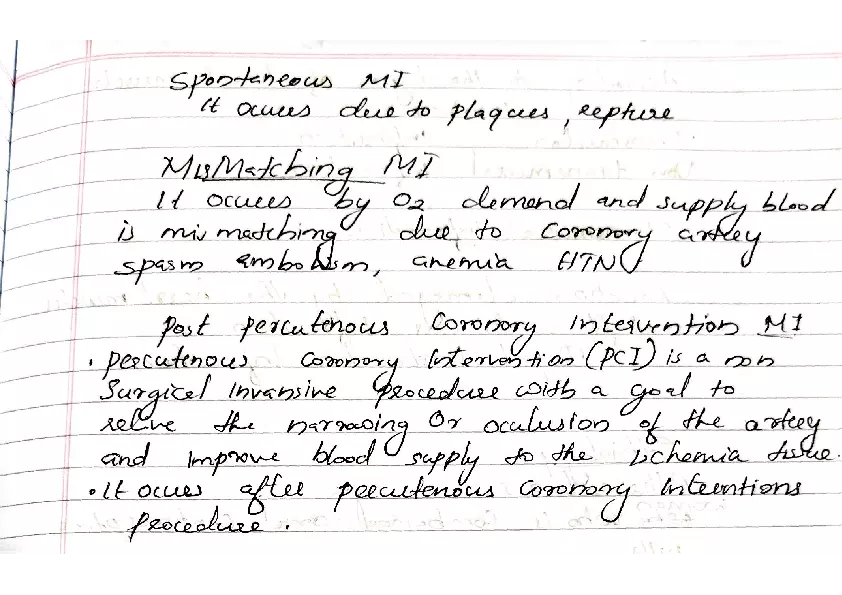 Spontaneous MI
It occues due to plaques, repture
MisMatching MI
It occues by O2 demand and supply blood
is mismatching due to coronory artey
spasm embolism, anemia HTN
Post percutenous Coronory Intervention MI
• percutenous Coronory Intervention (PCI) is a non
Surgical Invansive Procedure with a goal to
relive the narrowing Or oculusion of the artey
and Improve blood supply to the ischemia tissue.
• It occues aftee peecutenous Coronory Inteentions
Procedure.